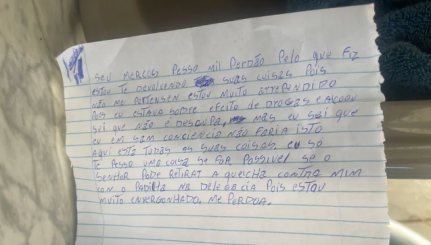 SEU MARCIO PESSO MIL PERDÃO PELO QUE FIZ
ESTOU TE DEVOLVENDO SUAS COISAS POIS
NÃO ME PERTENSEN ESTOU MUITO ARREPENDIDO
POIS EU ESTAVA SOBRE EFEITO DE DROGAS E ALCOOU
SEI QUE NÃO É DESCUPA, MAS EU SEI QUE
EU EM SAM CONCIENCIA NÃO FARIA ISTO
AQUI ESTA TODAS AS SUAS COISAS. EU SÓ
TE PESSO UMA COISA SE FOR POSSIVEL SE O
SENHOR PODE RETIRAR A QUEICHA CONTRA MIM
CON O NA DELEGACIA POIS ESTOU
MUITO ENVERGONHADO. ME PERDOA.